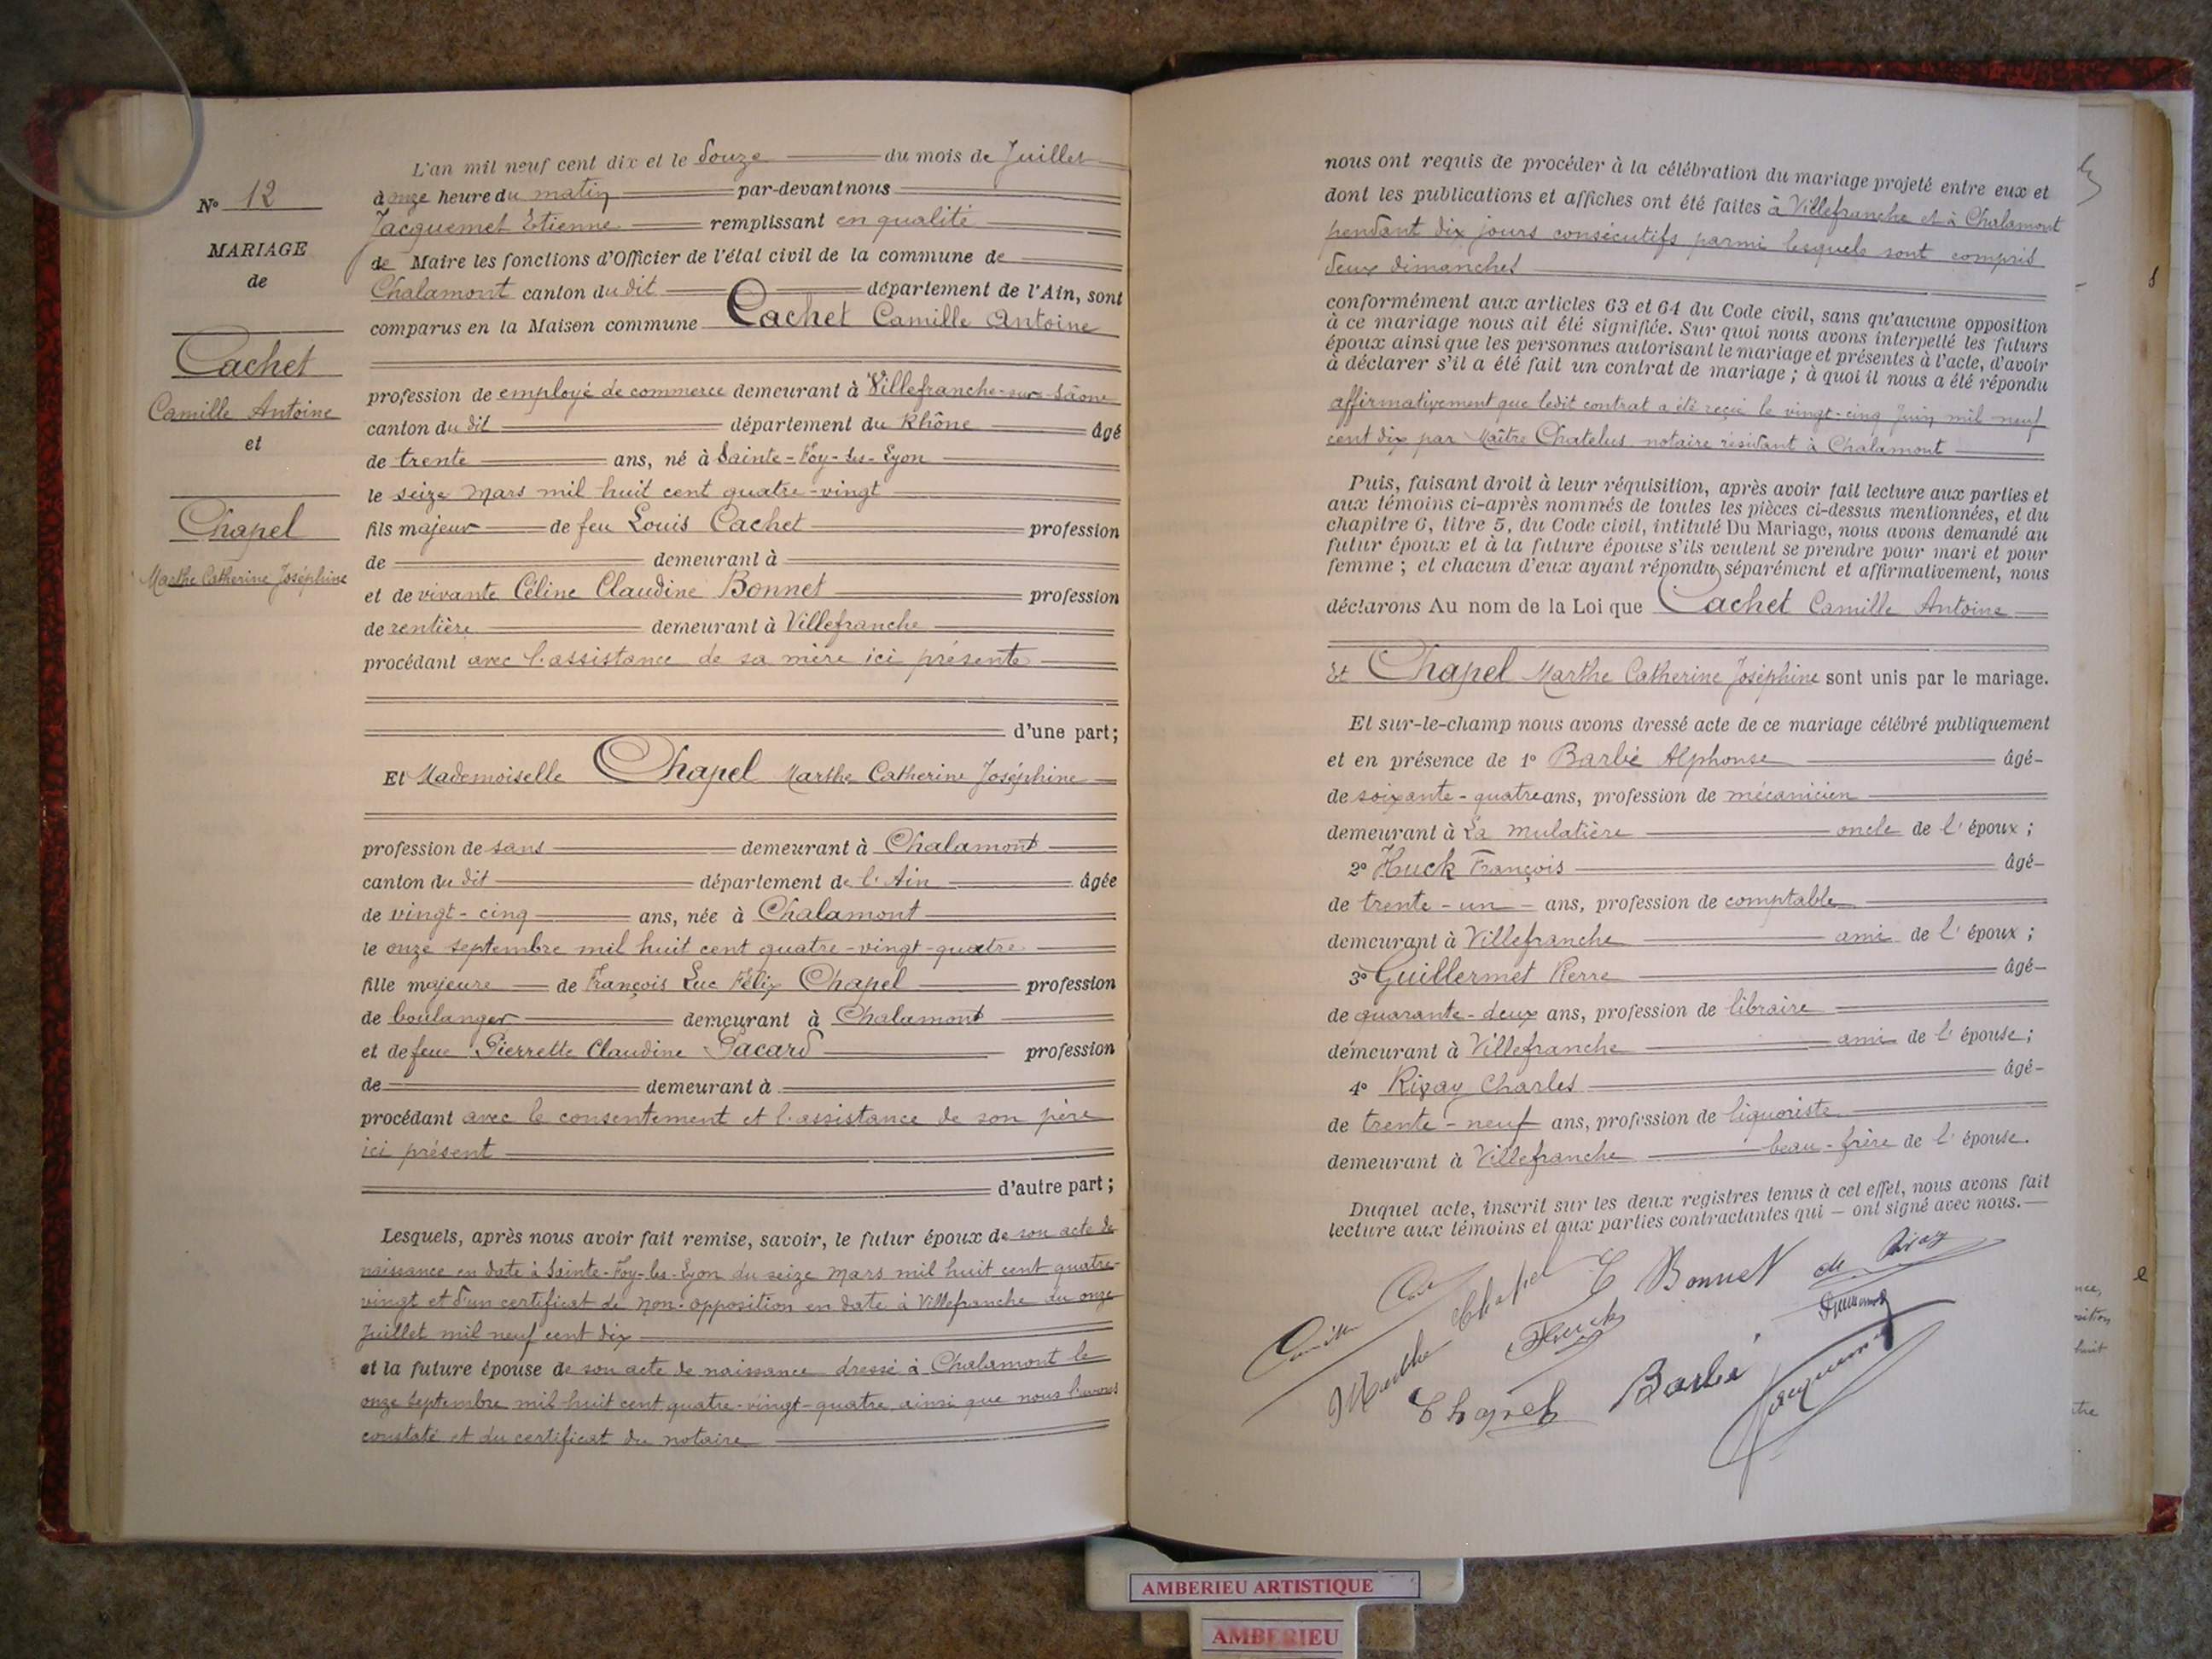 L'an mil neuf cent dix et le douze du mois de Juillet
à onze heure du matin par-devant nous
Jacquemet Etienne remplissant en qualité
de Maire les fonctions d'Officier de l'état civil de la commune de
Chalamont canton du dit département de l'Ain, sont
comparus en la Maison commune Cachet Camille Antoine
N° 12
MARIAGE
de
Cachet
Camille Antoine
et
Chapel
Marthe Catherine Joséphine
profession de employé de commerce demeurant à Villefranche-sur-Saône
canton du dit département du Rhône âgé
de trente ans, né à Sainte-Foy-les-Lyon
le seize Mars mil huit cent quatre-vingt
fils majeur de feu Louis Cachet profession
de demeurant à
et de vivante Céline Claudine Bonnet profession
de rentière demeurant à Villefranche
procédant avec l'assistance de sa mère ici présente
d'une part;
Et Mademoiselle Chapel Marthe Catherine Joséphine
profession de sans demeurant à Chalamont
canton du dit département de l'Ain âgée
de vingt-cinq ans, née à Chalamont
le onze septembre mil huit cent quatre-vingt-quatre
fille majeure de François Luc Félix Chapel profession
de boulanger demeurant à Chalamont
et de feue Pierrette Claudine Pacard profession
de demeurant à
procédant avec le consentement et l'assistance de son père
ici présent
d'autre part;
Lesquels, après nous avoir fait remise, savoir, le futur époux de son acte de
naissance en date à Sainte-Foy-les-Lyon du seize Mars mil huit cent quatre-
vingt et d'un certificat de non-opposition en date à Villefranche du onze
Juillet mil neuf cent dix
et la future épouse de son acte de naissance dressé à Chalamont le
onze Septembre mil huit cent quatre-vingt-quatre, ainsi que nous l'avons
constaté et du certificat du notaire
nous ont requis de procéder à la célébration du mariage projeté entre eux et
dont les publications et affiches ont été faites à Villefranche et à Chalamont
pendant dix jours consécutifs parmi lesquels sont compris
deux dimanches
conformément aux articles 63 et 64 du Code civil, sans qu'aucune opposition
à ce mariage nous ait été signifiée. Sur quoi nous avons interpellé les futurs
époux ainsi que les personnes autorisant le mariage et présentes à l'acte, d'avoir
à déclarer s'il a été fait un contrat de mariage; à quoi il nous a été répondu
affirmativement que ledit contrat a été reçu le vingt-cinq Juin mil neuf
cent dix par Maître Chatelus notaire résidant à Chalamont
Puis, faisant droit à leur réquisition, après avoir fait lecture aux parties et
aux témoins ci-après nommés de toutes les pièces ci-dessus mentionnées, et du
chapitre 6, titre 5, du Code civil, intitulé Du Mariage, nous avons demandé au
futur époux et à la future épouse s'ils veulent se prendre pour mari et pour
femme; et chacun d'eux ayant répondu séparément et affirmativement, nous
déclarons Au nom de la Loi que Cachet Camille Antoine
Et Chapel Marthe Catherine Joséphine sont unis par le mariage.
Et sur-le-champ nous avons dressé acte de ce mariage célébré publiquement
et en présence de 1° Barbié Alphonse âgé-
de soixante-quatre ans, profession de mécanicien
demeurant à La Mulatière oncle de l'époux;
2° Huck François âgé-
de trente-un- ans, profession de comptable
demeurant à Villefranche ami de l'époux;
3° Guillermet Pierre âgé-
de quarante-deux ans, profession de libraire
demeurant à Villefranche ami de l'épouse;
4° Rivay Charles âgé-
de trente-neuf ans, profession de liquoriste
demeurant à Villefranche beau-frère de l'épouse.
Duquel acte, inscrit sur les deux registres tenus à cet effet, nous avons fait
lecture aux témoins et aux parties contractantes qui — ont signé avec nous.—
C Bonnet
Marthe Chapel
Huck
Chapel
Barbié
AMBERIEU ARTISTIQUE
AMBERIEU